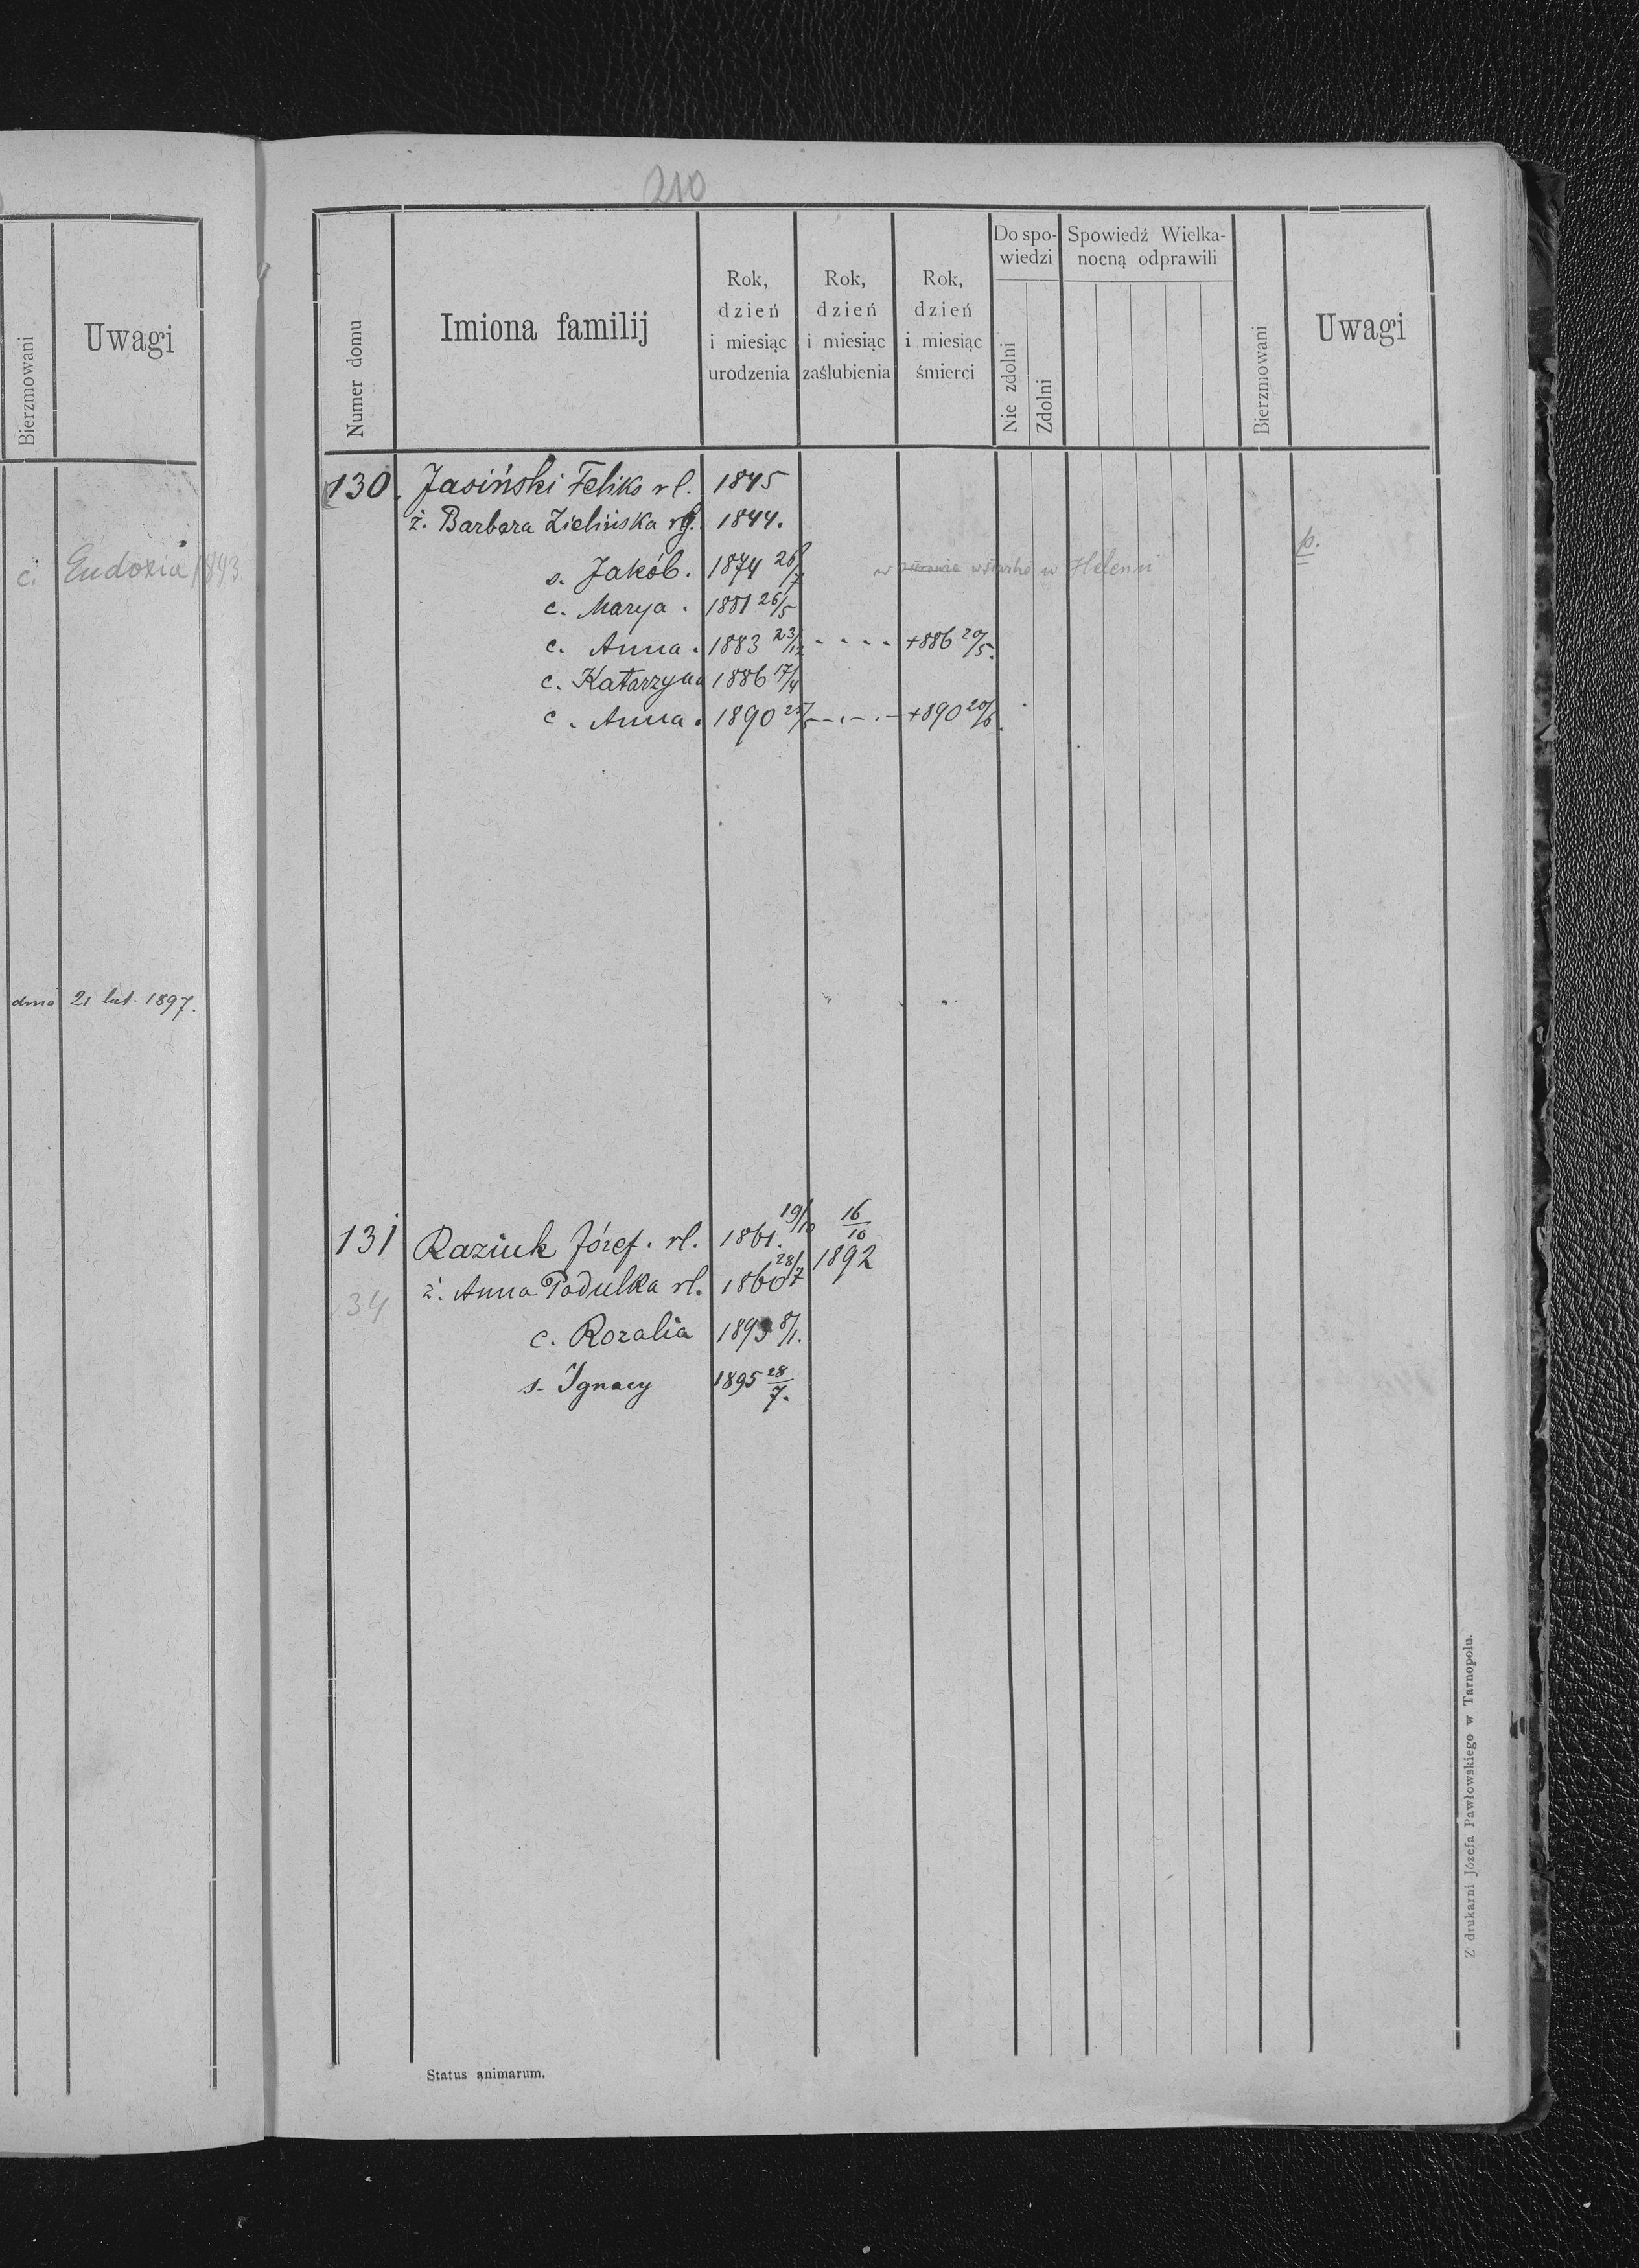 Bierzmowani
Uwagi
c. Eudoxia 1893.
dnia 21 lut. 1897.
210
Numer domu
Imiona familij
Rok, dzień i miesiąc urodzenia
Rok, dzień i miesiąc zaślubienia
Rok, dzień i miesiąc śmierci
Do spowiedzi
Nie zdolni
Zdolni
Spowiedź Wielkanocną odprawili
Bierzmowani
Uwagi
130. Jasiński Feliks rl. 1845
ż. Barbara Zielińska rg. 1844. p.
s. Jakób. 1874 26/7 w Helenu
c. Marya. 1881 26/5
c. Anna. 1883 23/12 - - - - +886 20/5.
c. Katarzyna 1886 17/4
c. Anna. 1890 +890 20/6.
131 Raziuk Józef. rl. 1861. 19/10 16/10 1892
34 ż. Anna Padulka rl. 1860 28/7
c. Rozalia 1893 8/1.
s. Ignacy 1895 28/7.
Status animarum.
Z drukarni Józefa Pawłowskiego w Tarnopolu.